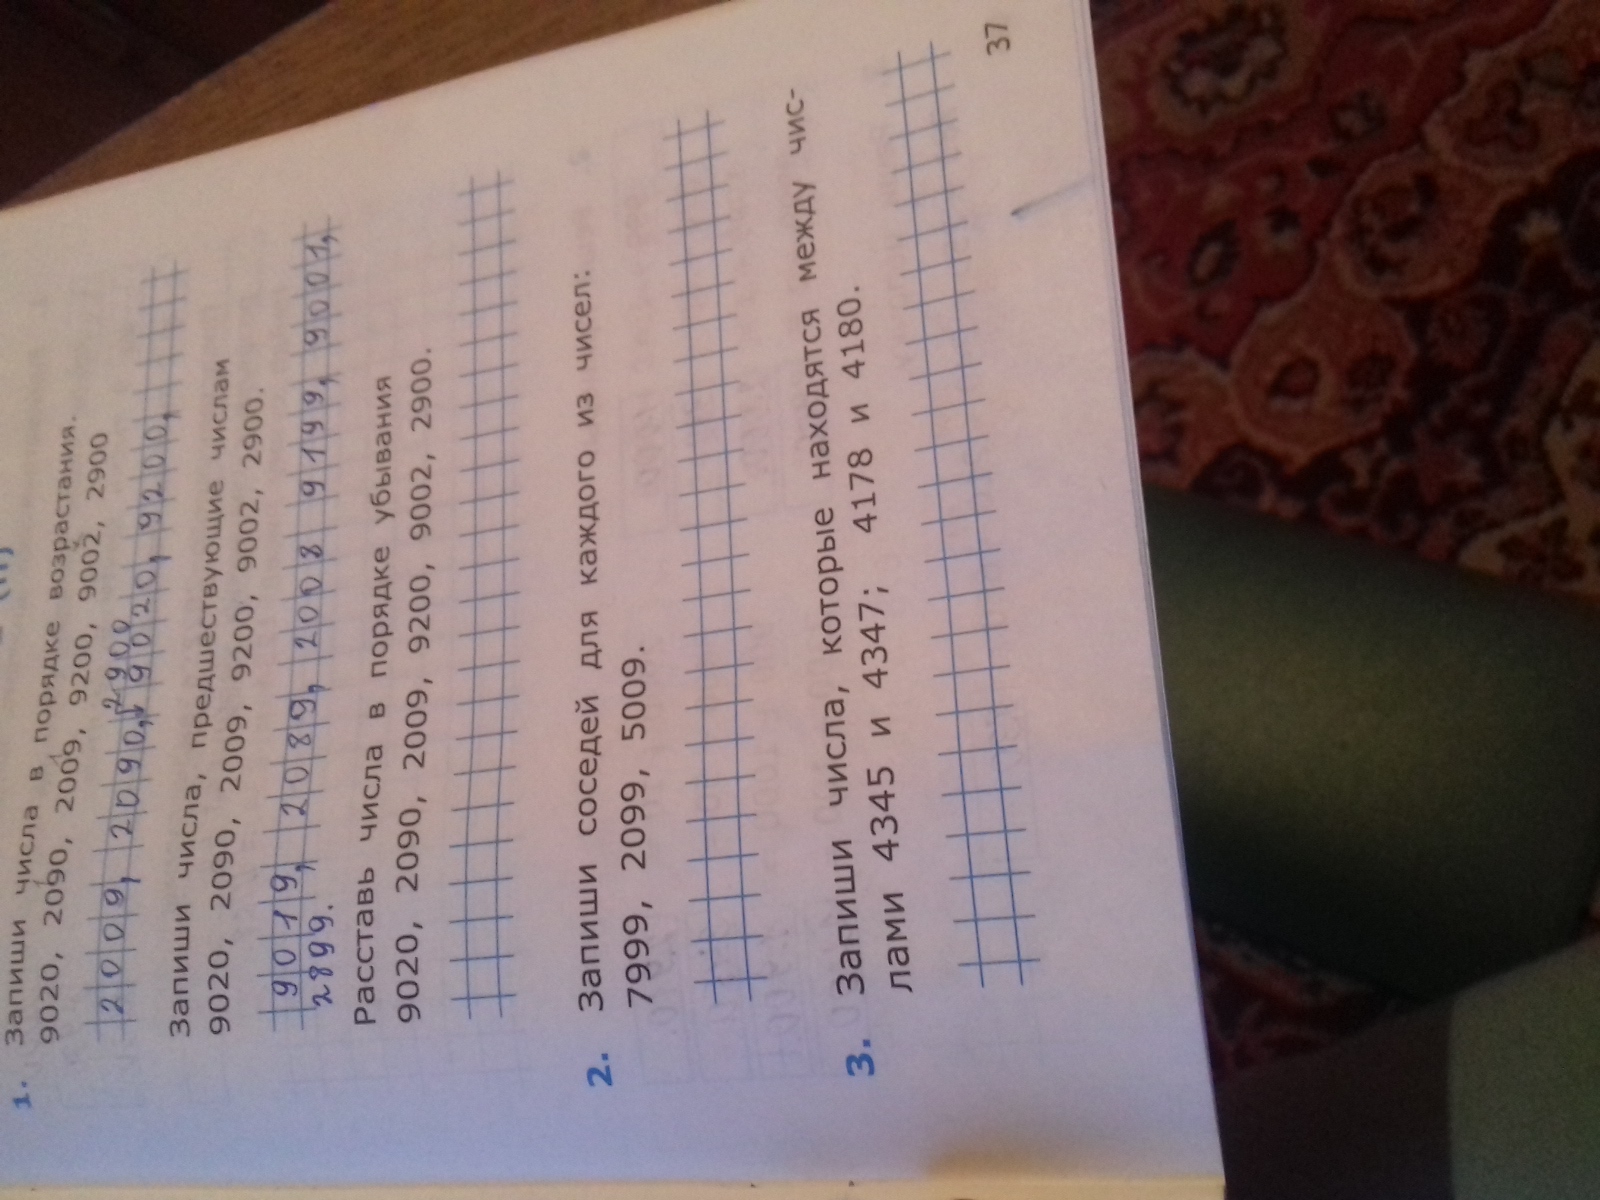 1. Запиши числа в порядке возрастания.
9020, 2090, 2009, 9200, 9002, 2900
2900
2009, 2090, 9020, 9200,
Запиши числа, предшествующие числам
9020, 2090, 2009, 9200, 9002, 2900.
9019, 2089, 2008 9199, 9001,
2899.
Расставь числа в порядке убывания
9020, 2090, 2009, 9200, 9002, 2900.
2. Запиши соседей для каждого из чисел:
7999, 2099, 5009.
3. Запиши числа, которые находятся между чис-
лами 4345 и 4347; 4178 и 4180.
37